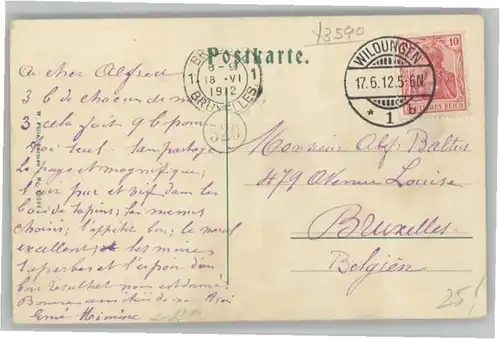 Y3590
Postkarte.
BRUXELLES
8-9
1 18-VI 1
1912
BRUXELLES
WILDUNGEN
17.6.12.5-6N
* 1 b
10
DEUTSCHES REICH
328
A cher Alfred
3 b de chacun de
3 cela fait 9 b pour
toi seul.
le pays est magnifique;
l'air pur et vif dans les
bois de sapins; les menus
choisis; l'appétit bon; le moral
excellent; les mines
superbes et l'espoir d'un
bon résultat
Bonnes amitiés de
Monsieur Alf. Baltus
479 Avenue Louise
Bruxelles
Belgiën
25